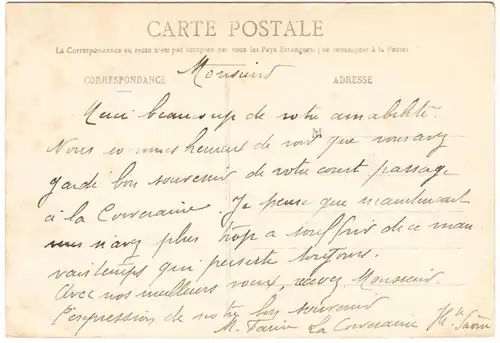 CARTE POSTALE
La Correspondance au recto n'est pas acceptée par tous les Pays Etrangers (se renseigner à la Poste)
CORRESPONDANCE
ADRESSE
Monsieur
Merci beaucoup de votre amabilité.
Nous sommes heureux de voir que vous avez
gardé bon souvenir de votre court passage
à la Corveraine. Je pense que maintenant
vous n'avez plus trop a souffrir de ce mau
vais temps qui persiste toujours.
Avec nos meilleurs vœux, recevez, Monsieur
l'expression de notre bon souvenir
M. La Corveraine Hte Saône